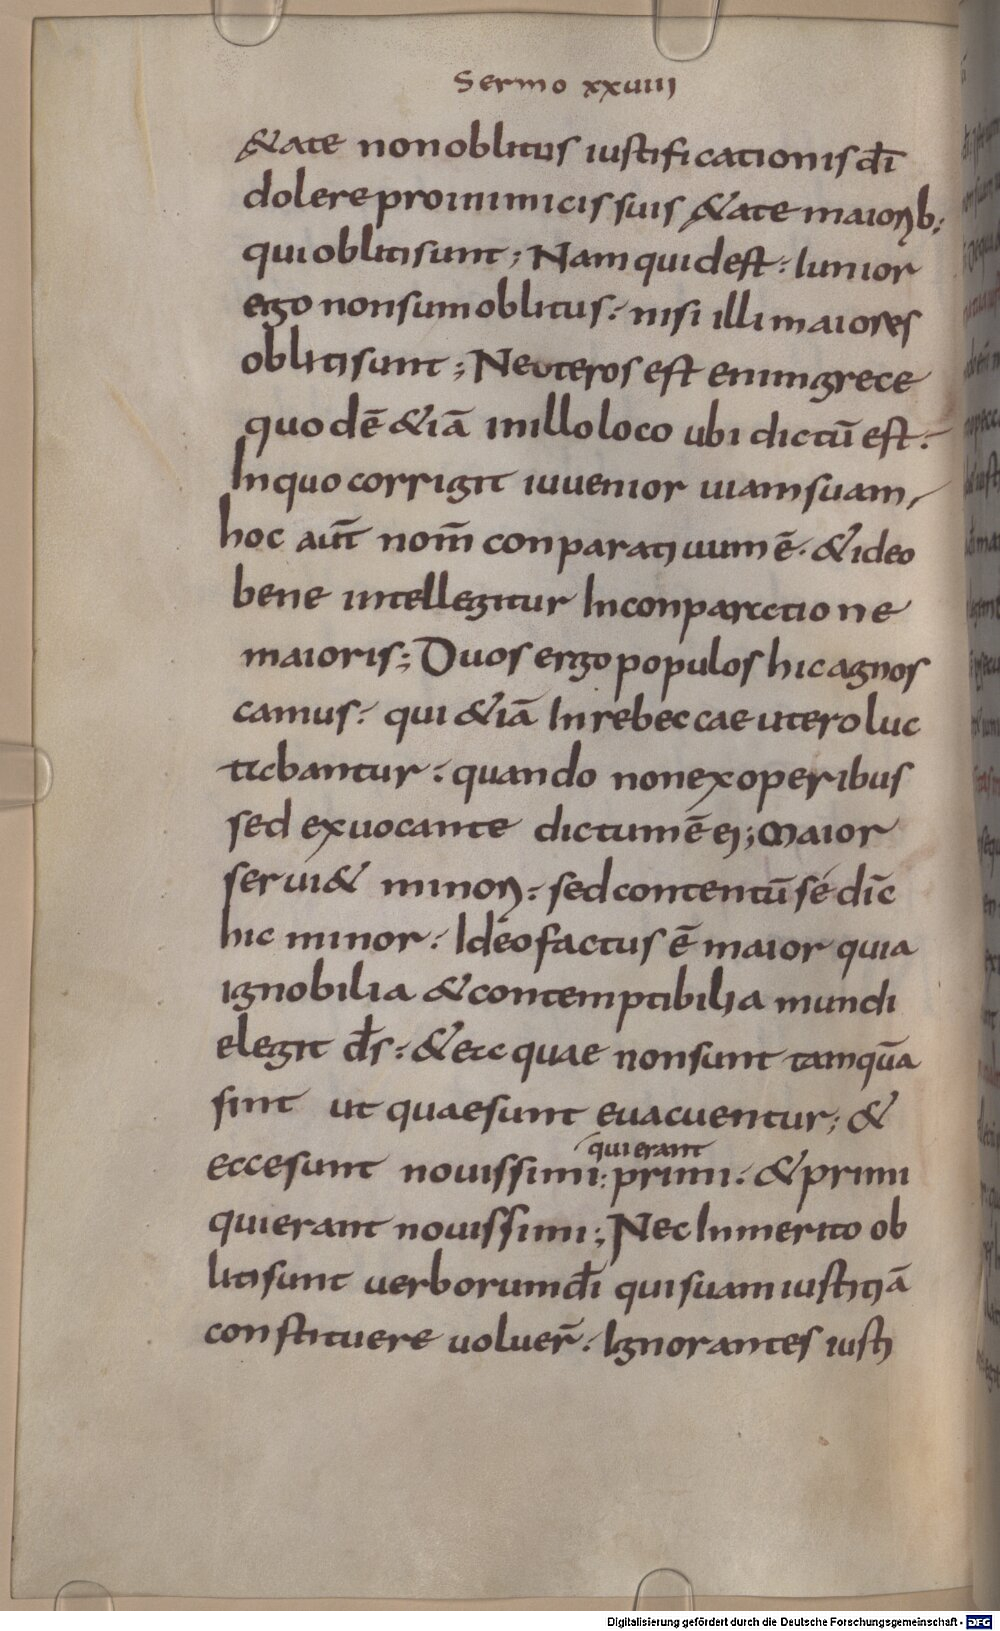 Sermo xxuiiii
&ate nonoblitus iustificationis dī
dolere proinimicis suis &ate maiorib;
qui obliti sunt; Nam quid est: Iunior
ergo non sum oblitus: nisi illi maiores
obliti sunt; Neoteros est enim grece
quod ē &iā inillo loco ubi dictū est:
In quo corrigit iuuenior uiam suam,
hoc aut̄ nom̄ conparatiuum ē. & ideo
bene intellegitur In conparatione
maioris; Duos ergo populos hic agnos
camus: qui &iā In rebeccae utero luc
tabantur: quando non ex operibus
sed ex uocante dictum ē ei; Maior
serui& minori: sed contentū se dīc
hic minor: Ideo factus ē maior quia
ignobilia & contemptibilia mundi
elegit d̄s: & ea quae non sunt tamquā
sint ut quae sunt euacuentur; &
ecce sunt nouissimi: primi: & primi
qui erant
qui erant nouissimi; Nec Inmerito ob
liti sunt uerborum dī qui suam iustitiā
constituere uoluer̄: Ignorantes iusti
Digitalisierung gefördert durch die Deutsche Forschungsgemeinschaft - DFG